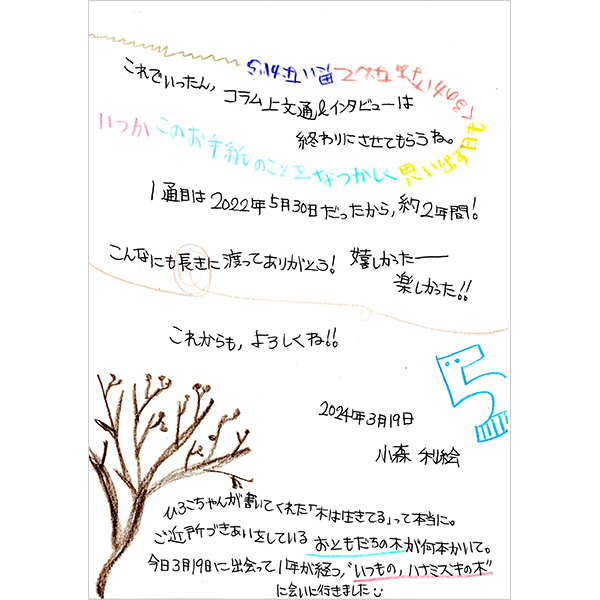 これでいったん、コラム上文通&インタビューは
終わりにさせてもらうね。
いつか このお手紙のことを なつかしく 思い出す日も
1通目は2022年5月30日だったから、約2年間!
こんなにも長きに渡ってありがとう! 嬉しかったー
楽しかった!!
これからも、よろしくね!!
5
2024年3月19日
小森 利絵
ひろこちゃんが書いてくれた「木は生きてる」って本当に。
ご近所づきあいをしているおともだちの木が何本かいて。
今日3月19日に出会って1年が経つ、"いつもの、ハナミズキの木"
に会いに行きました